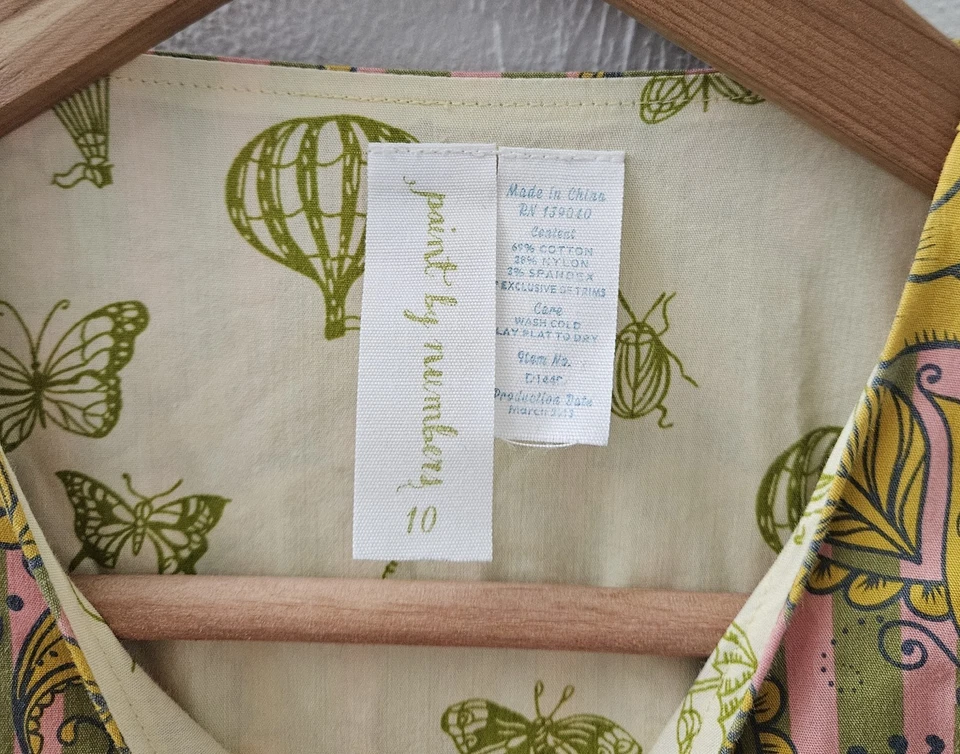 paint by numbers
10
Made in China
RN 139040
Content
69% COTTON
28% NYLON
3% SPANDEX
*EXCLUSIVE OF TRIMS
Care
WASH COLD
LAY FLAT TO DRY
Item No.
Production Date
March